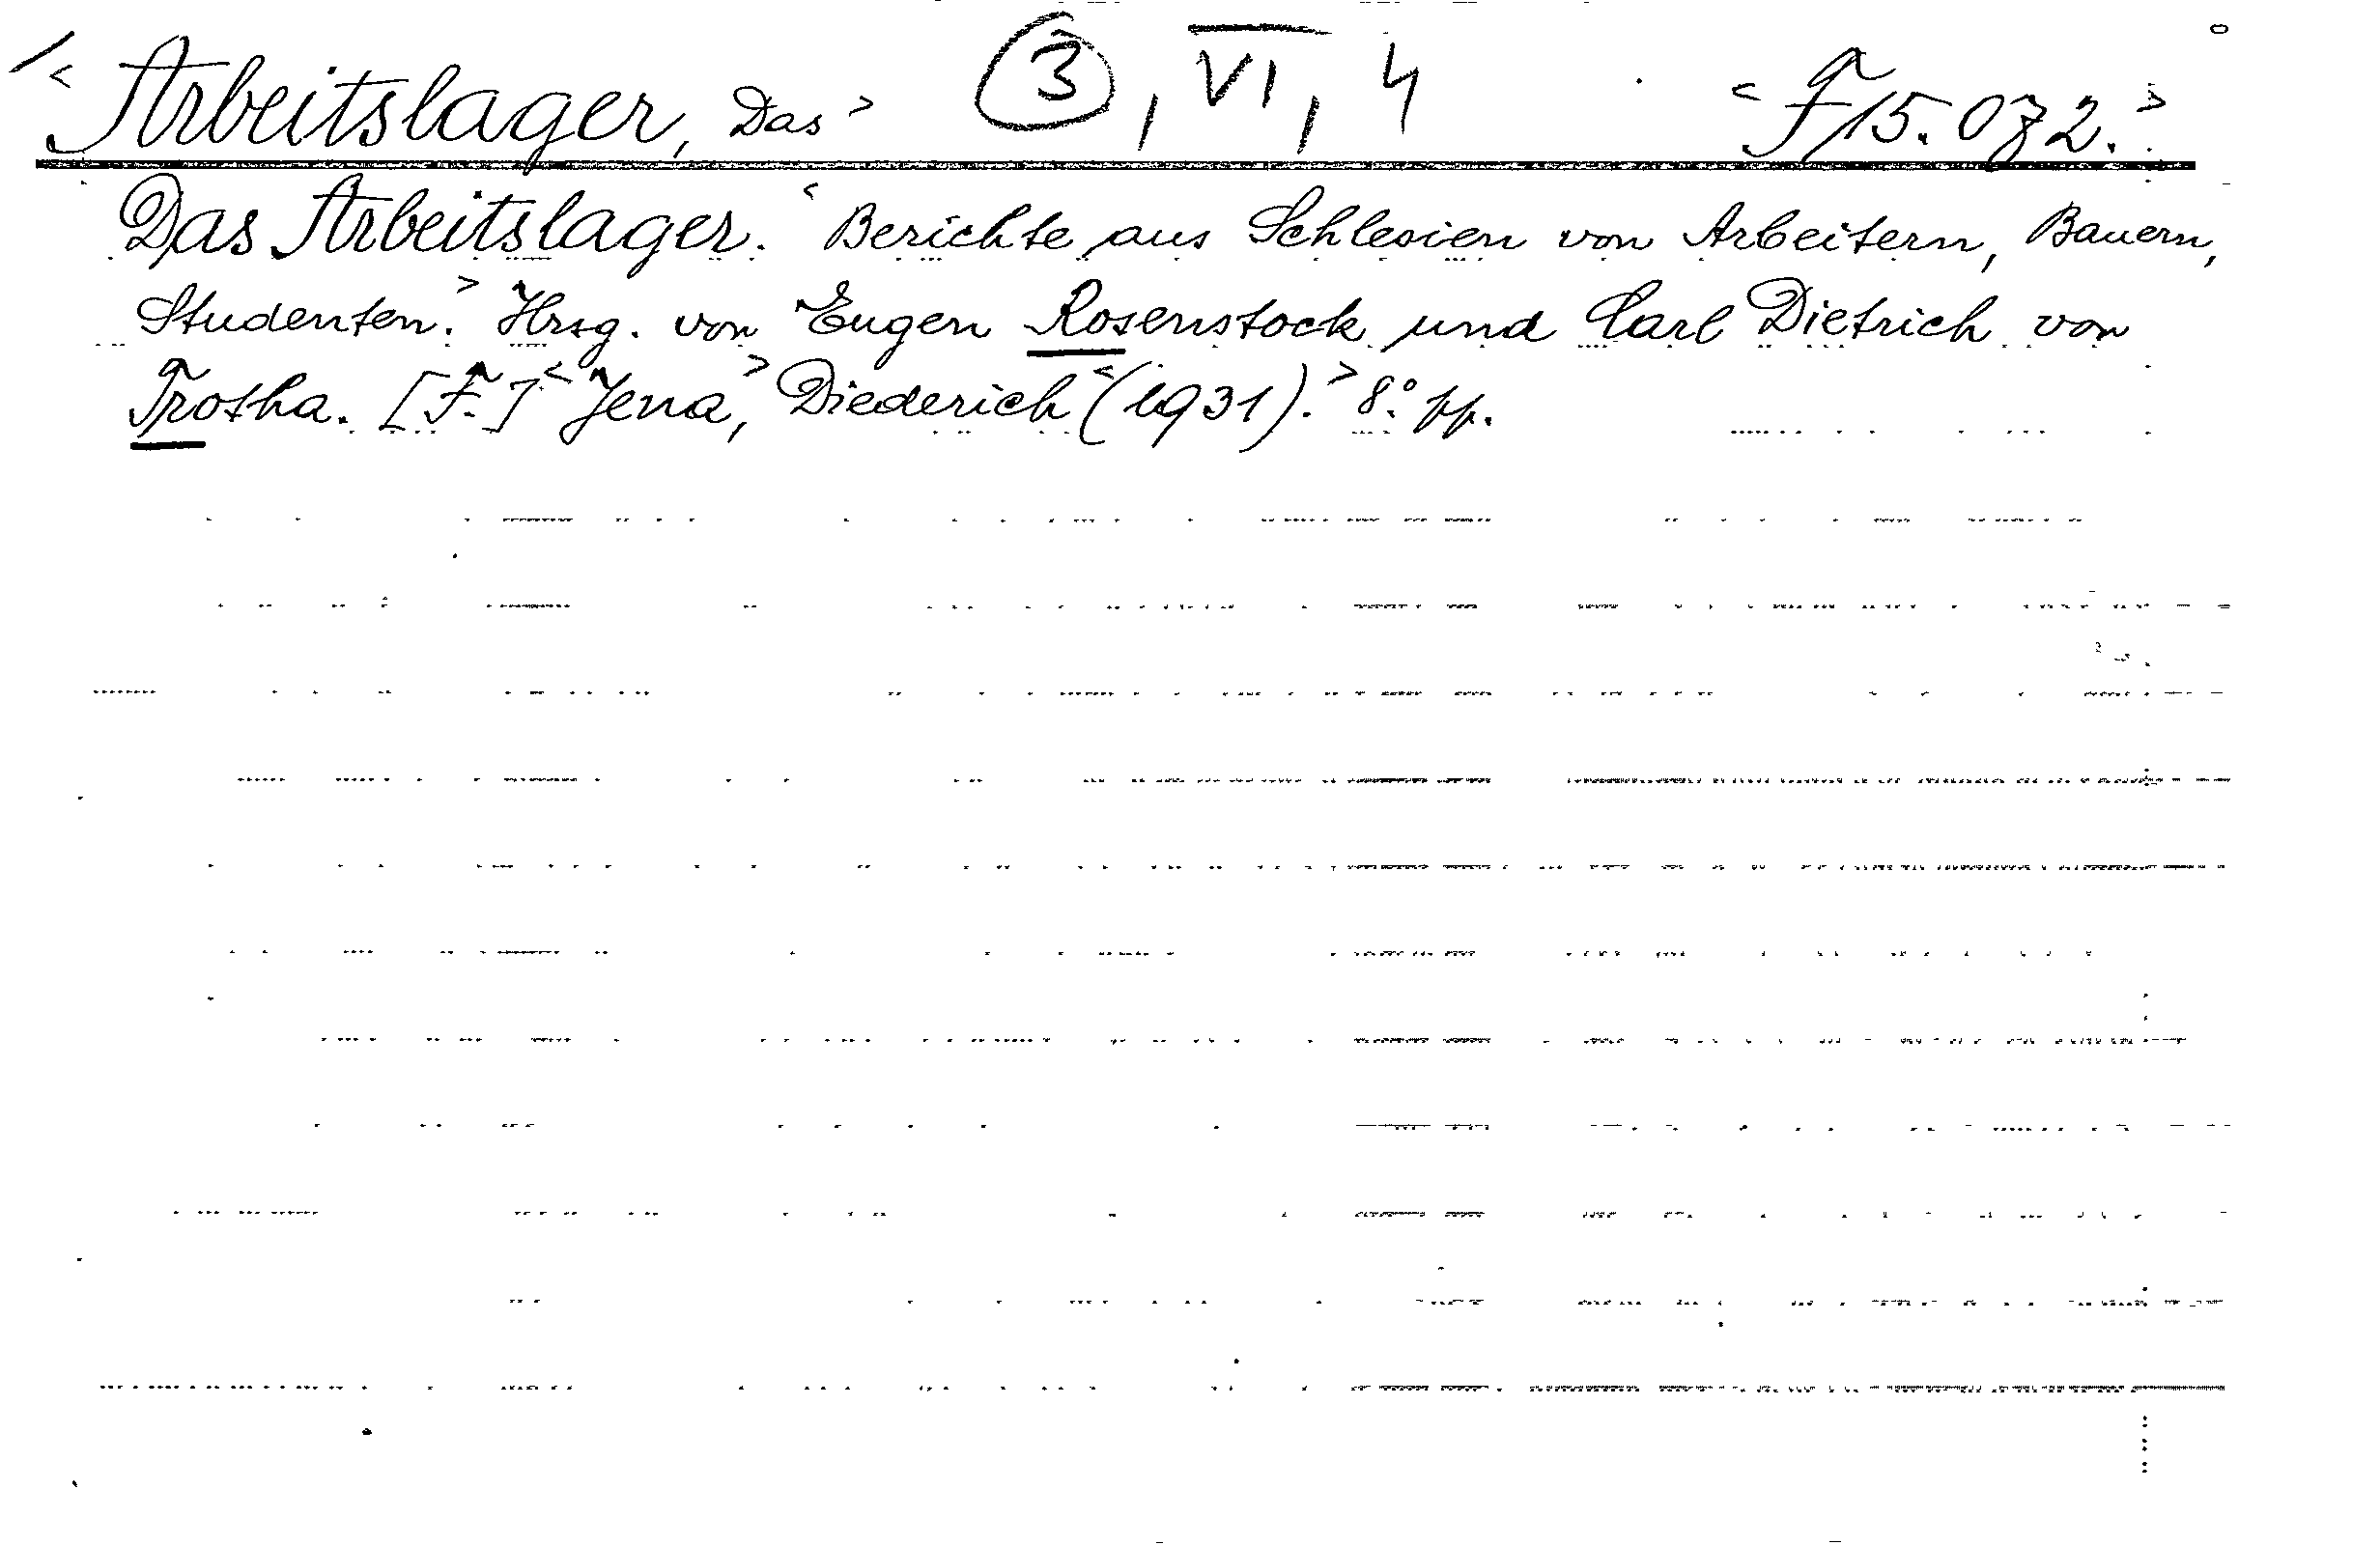 < Arbeitslager, Das > ③, VI, 4 < F 15.072. >
Das Arbeitslager. < Berichte aus Schlesien von Arbeitern, Bauern,
Studenten. > Hrsg. von Eugen Rosenstock und Carl Dietrich von
Trotha. [F.] < Jena, > Diederich < (1931). > 8.° pp.